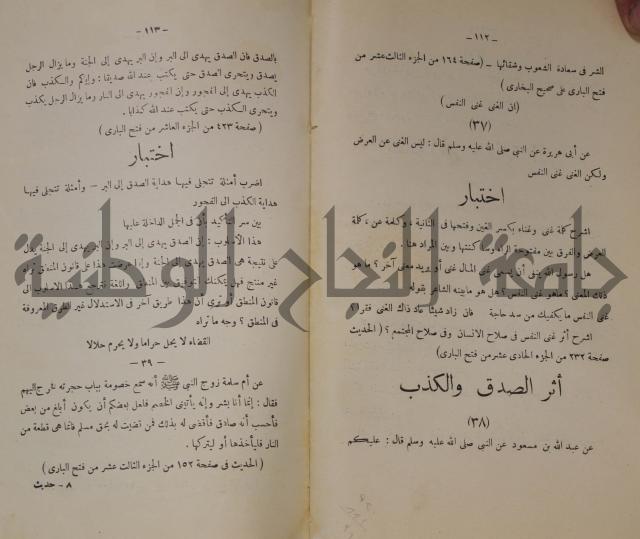 — ١١٢ —
الشر فى سعادة الشعوب وشقائها — (صفحة ١٦٤ من الجزء الثالث عشر من
فتح البارى على صحيح البخارى)
(ان الغنى غنى النفس)
(٣٧)
عن أبى هريرة عن النبي صلى الله عليه وسلم قال : ليس الغنى عن العرض
ولكن الغنى غنى النفس
اختبار
اشرح كلمة غنى وغناء بكسر الغين وفتحها فى الثانية ، وكلمة عن ، كلمة
العرض والفرق بين مفتوحة الراء وساكنتها وبين المراد هنا .
هل رسول الله ينفى أن يسمى غنى المال غنى أو يريد معنى آخر ؟ ما هو
ذلك المعنى ؟ ما هو غنى النفس ؟ هل هو ما بينه الشاعر بقوله
غنى النفس ما يكفيك من سد حاجة فان زاد شيئا عاد ذاك الغنى فقرا ؟
اشرح أثر غنى النفس فى صلاح الانسان وفى صلاح المجتمع ؟ (الحديث
صفحة ٢٣٢ من الجزء الحادى عشر من فتح البارى)
أثر الصدق والكذب
(٣٨)
عن عبد الله بن مسعود عن النبي صلى الله عليه وسلم قال : عليكم
— ١١٣ —
بالصدق فان الصدق يهدى الى البر وإن البر يهدى إلى الجنة وما يزال الرجل
يصدق ويتحرى الصدق حتى يكتب عند الله صديقا : وإياكم والكذب فان
الكذب يهدى إلى الفجور وإن الفجور يهدى الى النار وما يزال الرجل يكذب
ويتحرى الكذب حتى يكتب عند الله كذابا .
(صفحة ٤٢٣ من الجزء العاشر من فتح البارى)
اختبار
اضرب أمثلة تتجلى فيها هداية الصدق إلى البر — وأمثلة تتجلى فيها
هداية الكذب الى الفجور
بين سر التأكيد بأن فى الجمل الداخلة عليها
هذا الأسلوب : إن الصدق يهدى إلى البر وإن البر يهدى إلى الجنة يدل
على نتيجة هى الصدق يهدى إلى الجنة وإذا عرضت هذا على قانون المنطق تراه
غير منتج فهل يمكنك التوفيق بين المنطق والبلاغة بترجيح هذا الأسلوب الى
قانون المنطق أو ترى أن هذا طريق آخر فى الاستدلال غير الطرق المعروفة
فى المنطق ؟ وجه ما تراه
القضاء لا يحل حراما ولا يحرم حلالا
— ٣٩ —
عن أم سلمة زوج النبي ﷺ أنه سمع خصومة بباب حجرته نفرج اليهم
فقال : إنما أنا بشر وإنه يأتينى الخصم فلعل بعضكم أن يكون أبلغ من بعض
فأحسب أنه صادق فأقضى له بذلك فمن قضيت له بحق مسلم فانما هى قطعة من
النار فليأخذها أو ليتركها .
(الحديث فى صفحة ١٥٢ من الجزء الثالث عشر من فتح البارى)
٨ - حديث
جامعة النجاح الوطنية